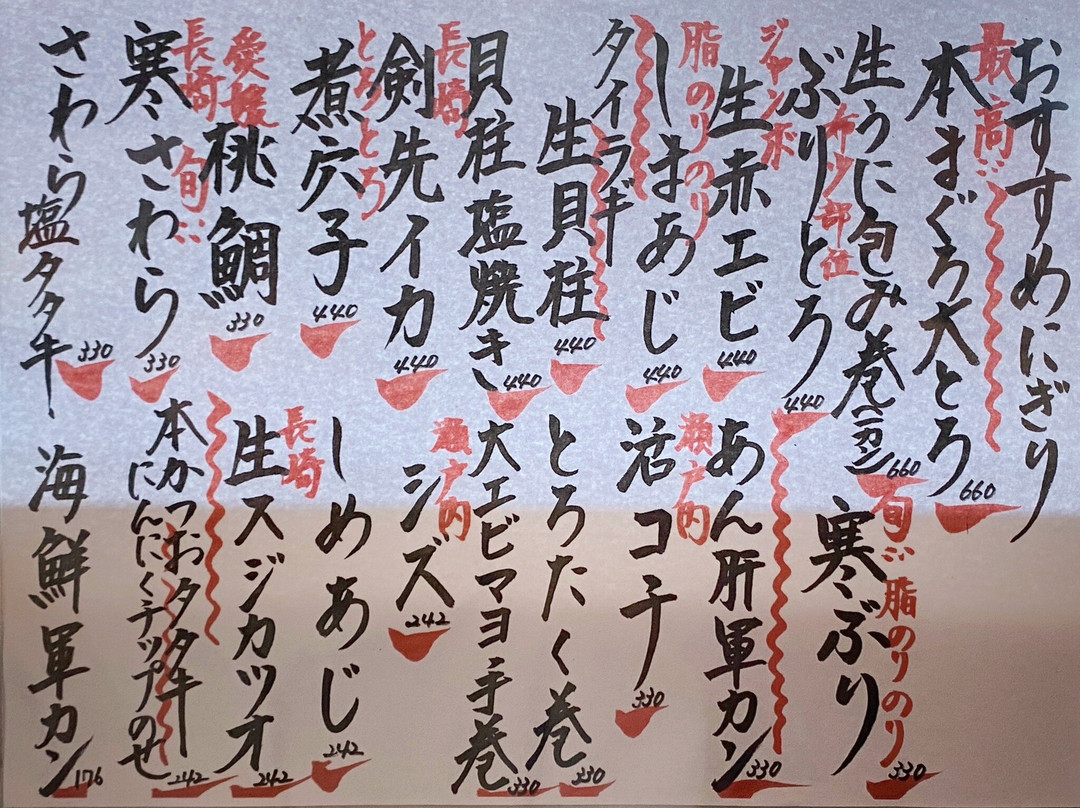 おすすめにぎり
最高!!
本まぐろ大とろ
660
生うに包み巻二カン
660
希少部位
ぶりとろ
440
ジャンボ
生赤エビ
440
脂のりのり
しまあじ
440
タイラギ
生貝柱
440
貝柱塩焼き
440
長崎
剣先イカ
440
とろとろ
煮穴子
440
愛媛
桃鯛
330
長崎 旬!!
寒さわら
330
さわら塩タタキ
330
旬!! 脂のりのり
寒ぶり
330
あん肝軍カン
330
瀬戸内
活コチ
330
とろたく巻
330
大エビマヨ手巻
330
瀬戸内
シズ
242
しめあじ
242
長崎
生スジカツオ
242
本かつおタタキ
にんにくチップのせ
242
海鮮軍カン
176